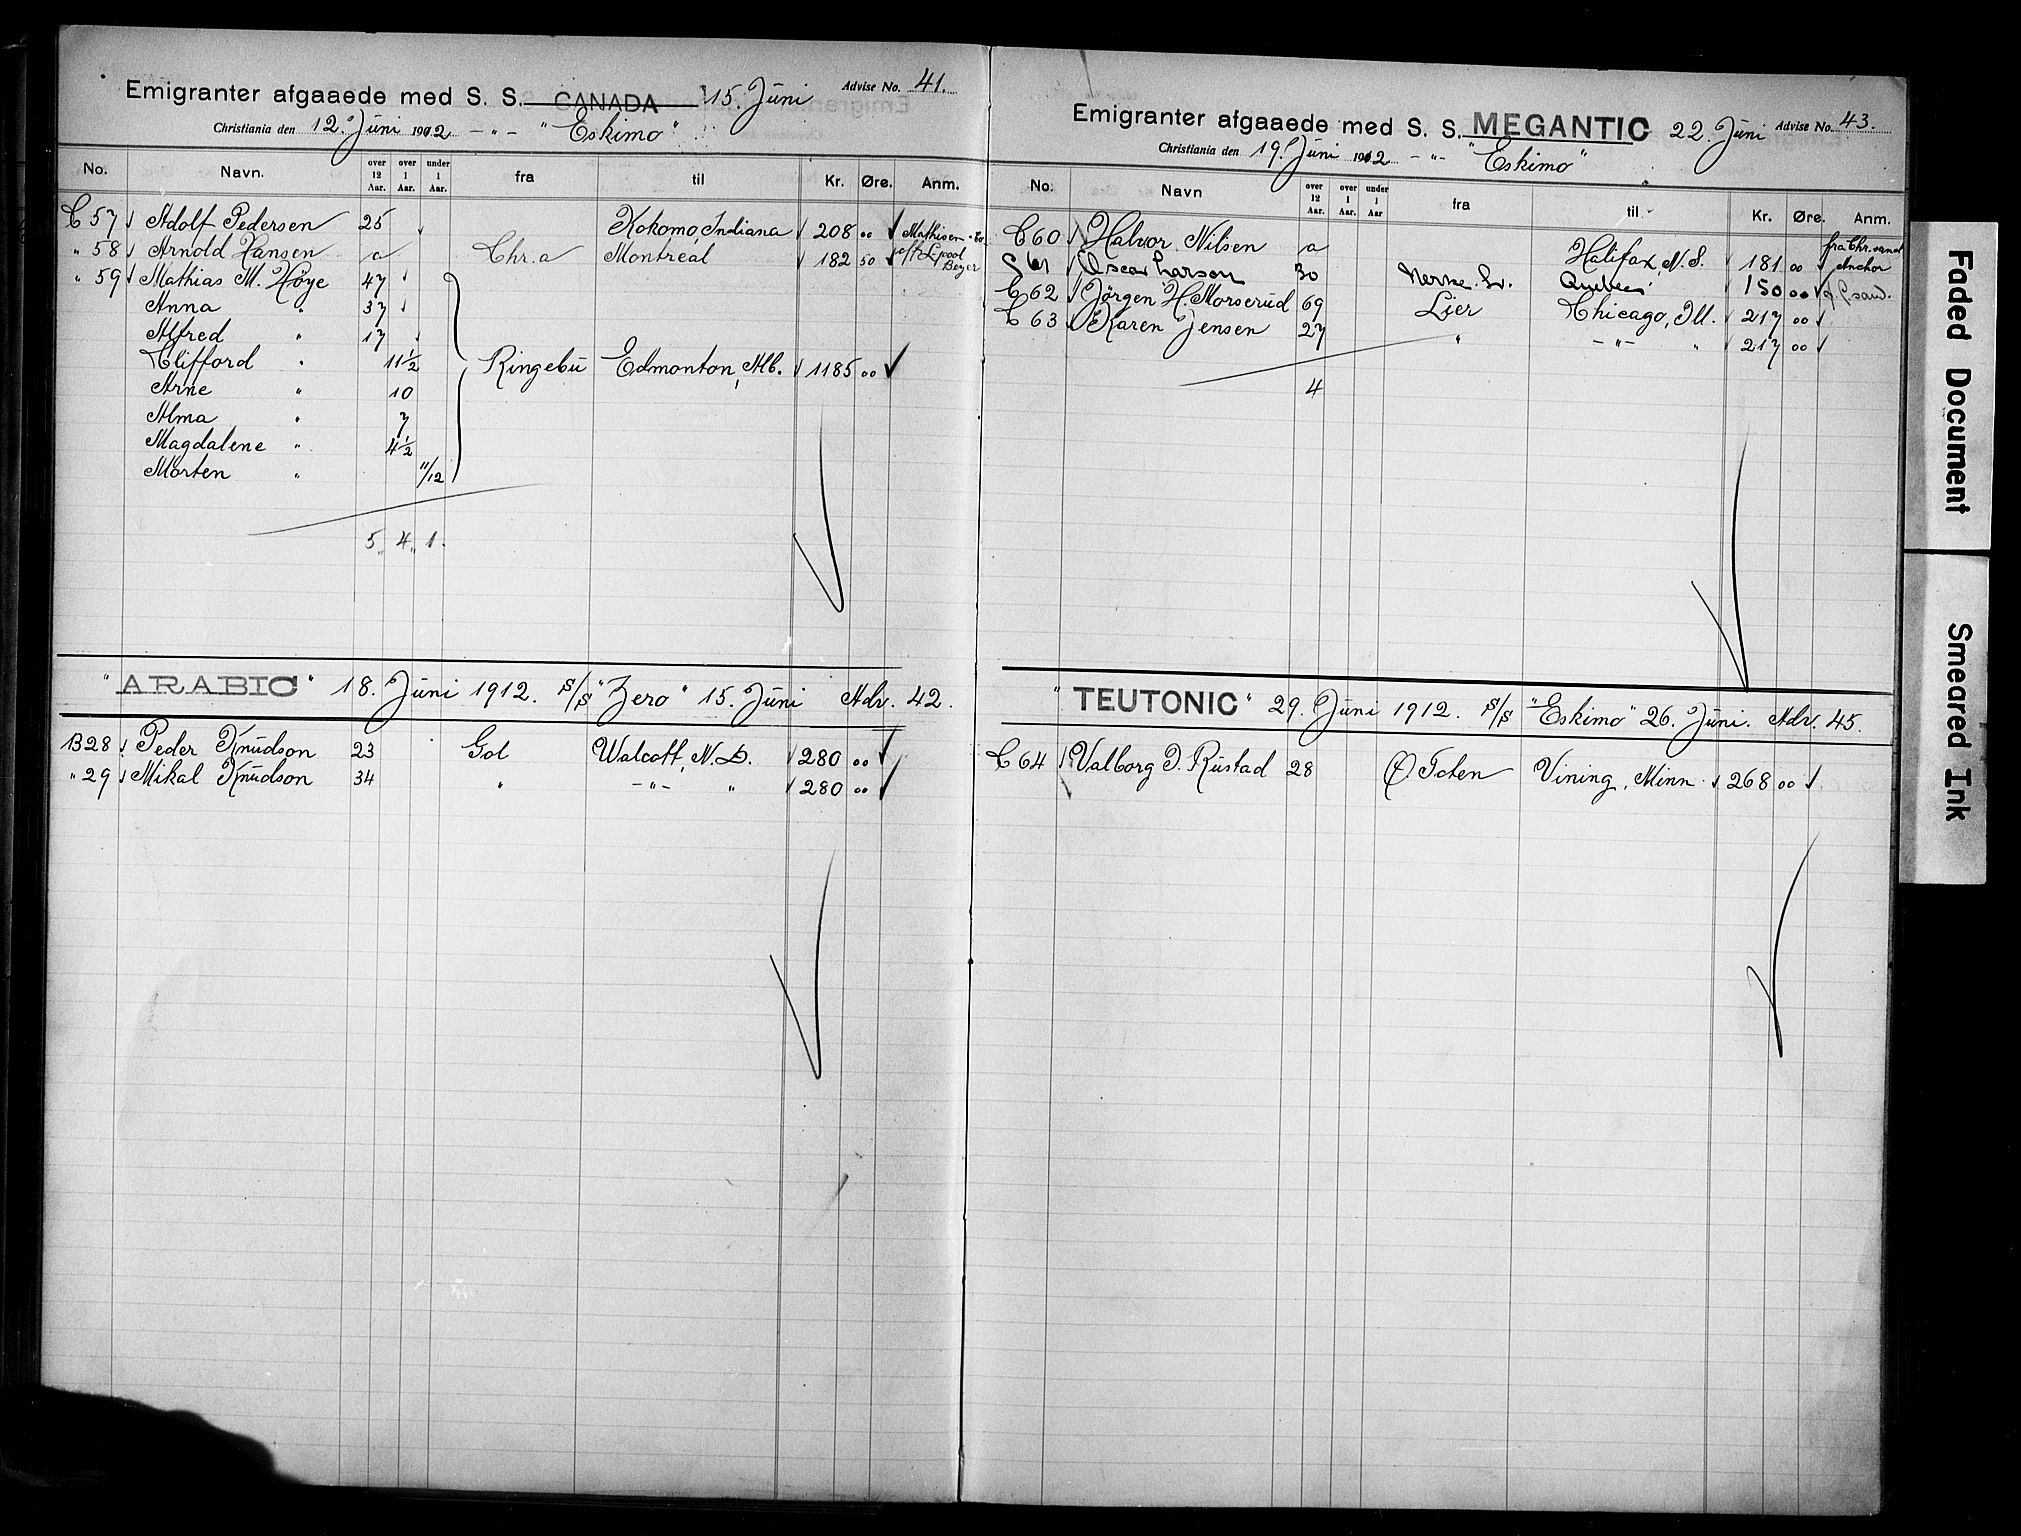 Emigranter afgaaede med S. S. CANADA 15. Juni Advise No. 41.
Christiania den 12. Juni 1912 -"- "Eskimo"
No. Navn. over 12 Aar. over 1 Aar. under 1 Aar. fra til Kr. Øre. Anm.
C 57 Adolf Pedersen 25 Kokomo, Indiana 208 00 Mathisen
" 58 Arnold Hansen a Chr.a Montreal 182 50 L'pool Beyer
" 59 Mathias M. Høye 47
Anna " 37
Alfred " 17
Clifford " 11 1/2 Ringebu Edmonton, Alb. 1185 00
Arne " 10
Alma " 7
Magdalene " 4 1/2
Morten " 11/12
5 " 4 " 1.
"ARABIC" 18. Juni 1912. s/s "Zero" 15. Juni Adv. 42.
B28 Peder Knudson 23 Gol Walcott, N.D. 280 00
" 29 Mikal Knudson 34 " -"- " 280 00
Emigranter afgaaede med S. S. MEGANTIC 22. Juni Advise No. 43.
Christiania den 19. Juni 1912 -"- "Eskimo"
No. Navn over 12 Aar. over 1 Aar. under 1 Aar fra til Kr. Øre. Anm.
C 60 Halvor Nilsen a Halifax, N.S. 181 00 fra Chr.sand Anchor
C 61 Oscar Larson 30 Quebec 150 00
C 62 Jörgen H. Morserud 69 Lier Chicago, Ill. 217 00
C 63 Karen Jensen 27 " -"- " 217 00
4
"TEUTONIC" 29. Juni 1912. s/s "Eskimo" 26. Juni. Adv. 45.
C 64 Valborg D. Rustad 28 Ø Toten Vining, Minn. 268 00
Faded Document
Smeared Ink